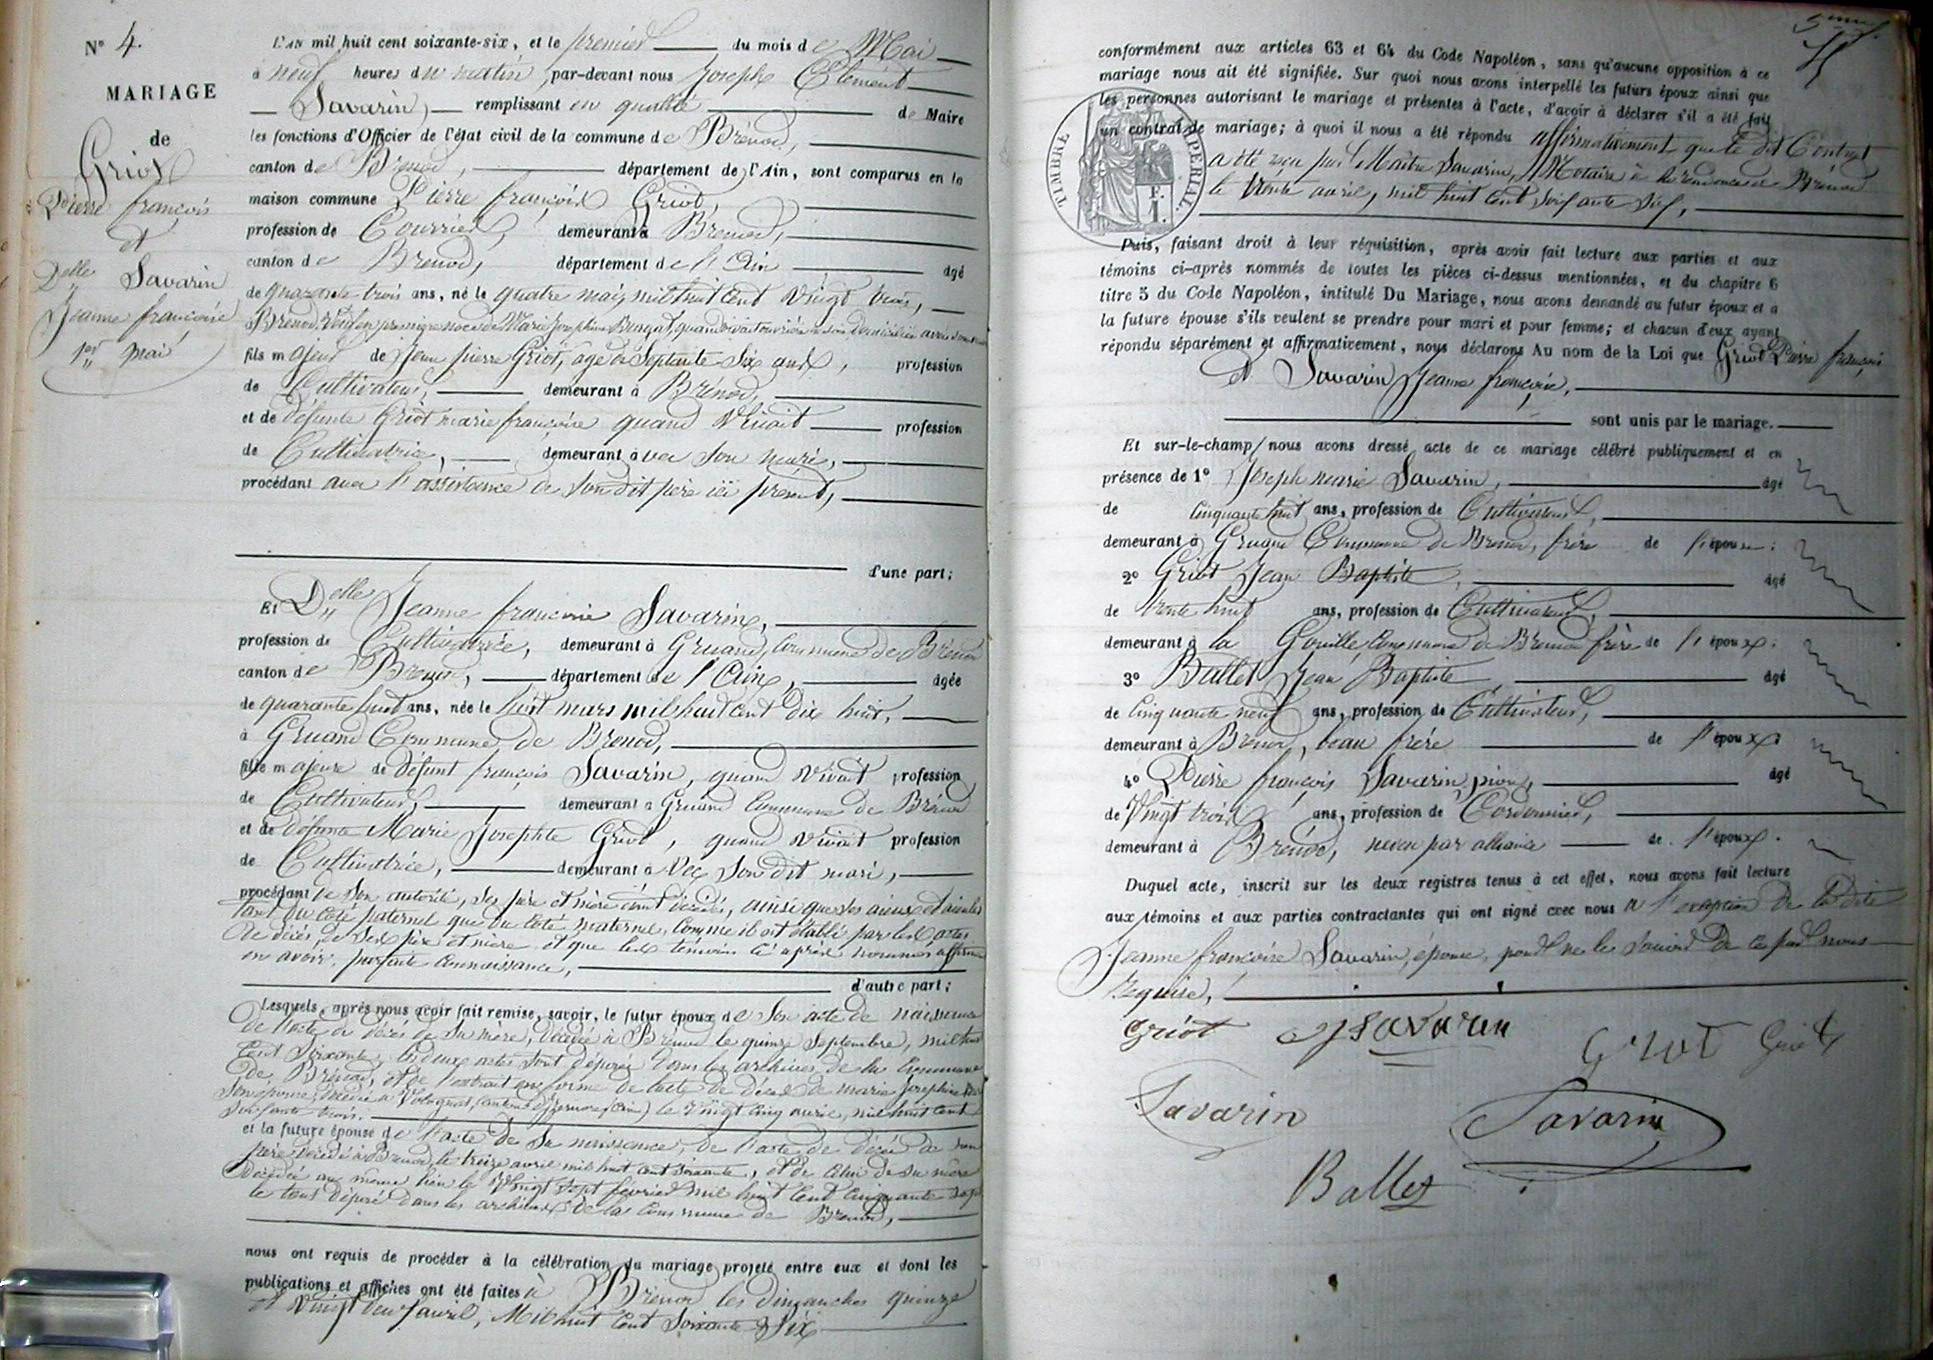 N° 4.
MARIAGE
de
Griot
Pierre françois
et
Delle Savarin
Jeanne françoise
1er mai
L'AN mil huit cent soixante-six, et le premier du mois de Mai
à neuf heures du matin, par-devant nous Joseph Clément
Savarin, remplissant en qualité de Maire
les fonctions d'Officier de l'état civil de la commune de Brénod,
canton de Brenod, département de l'Ain, sont comparus en la
maison commune Pierre françois Griot,
profession de Courrier, demeurant à Brenod,
canton de Brenod, département de l'Ain âgé
de quarante trois ans, né le quatre mai mil huit cent vingt trois,
à Brenod, Veuf en premiere noce de Marie Josephine quand vivait ouvrière en soie, domiciliée avec
fils majeur de Jean pierre Griot, âgé de Septante Six ans, profession
de Cultivateur, demeurant à Brénod,
et de défunte Griot marie françoise quand Vivait profession
de Cultivatrice, demeurant avec son mari,
procédant avec l'assistance de son dit père ici présent,
d'une part;
Et Delle Jeanne françoise Savarin,
profession de Cultivatrice, demeurant à Gruand, Commune de Brénod
canton de Brenod, département de l'Ain, âgée
de quarante huit ans, née le huit mars mil huit cent dix huit,
à Gruand Commune de Brenod,
fille majeure de défunt françois Savarin, quand vivait profession
de Cultivateur, demeurant à Gruand Commune de Brénod
et de défunte Marie Josephte Griot, quand vivait profession
de Cultivatrice, demeurant avec son dit mari,
procédant de son autorité, ses père et mère étant décédés, ainsi que ses aieux et aieules
tant du coté paternel que du coté maternel, comme il est établi par les actes
de décès de ses père et mère et que les témoins ci après nommés affirment
en avoir parfaite connaissance,
d'autre part;
Lesquels, après nous avoir fait remise, savoir, le futur époux de Son acte de naissance
de l'acte de décès de sa mère, décédée à Brénod le quinze Septembre, mil huit
cent soixante, les deux actes sont déposés dans les archives de la Commune
de Brénod, et de l'extrait en forme de l'acte de décès de marie Josephine
son épouse, décédée à Volognat, (Ain) le vingt cinq avril, mil huit cent
soixante trois.
et la future épouse de l'acte de sa naissance, de l'acte de décès de son
père décédé à Brenod, le treize avril mil huit cent soixante, et de celui de sa mère
décédée au même lieu le Vingt sept février mil huit cent cinquante sept
le tout déposé dans les archives de la Commune de Brenod,
nous ont requis de procéder à la célébration du mariage projeté entre eux et dont les
publications et affiches ont été faites à Brenod les dimanches quinze
et vingt deux avril, Mil huit cent Soixante Six
conformément aux articles 63 et 64 du Code Napoléon, sans qu'aucune opposition à ce
mariage nous ait été signifiée. Sur quoi nous avons interpellé les futurs époux ainsi que
les personnes autorisant le mariage et présentes à l'acte, d'avoir à déclarer s'il a été fait
un contrat de mariage; à quoi il nous a été répondu affirmativement que le dit Contrat
a été reçu par Maître Savarin, Notaire à la résidence de Brénod
le trente avril, mil huit cent soixante six,
TIMBRE IMPERIAL
F.
1.
Puis, faisant droit à leur réquisition, après avoir fait lecture aux parties et aux
témoins ci-après nommés de toutes les pièces ci-dessus mentionnées, et du chapitre 6
titre 5 du Code Napoléon, intitulé Du Mariage, nous avons demandé au futur époux et à
la future épouse s'ils veulent se prendre pour mari et pour femme; et chacun d'eux ayant
répondu séparément et affirmativement, nous déclarons Au nom de la Loi que Griot Pierre françois
et Savarin Jeanne françoise,
sont unis par le mariage.
Et sur-le-champ nous avons dressé acte de ce mariage célébré publiquement et en
présence de 1° Joseph marie Savarin, âgé
de cinquante huit ans, profession de Cultivateur,
demeurant à Gruand Commune de Brenod, frère de l'épouse;
2° Griot Jean Baptiste, âgé
de trente huit ans, profession de Cultivateur,
demeurant à la Gouille, Commune de Brenod frère de l'époux;
3° Ballet Jean Baptiste âgé
de cinquante neuf ans, profession de Cultivateur,
demeurant à Brenod, beau frère de l'époux;
4° Pierre françois Savarin âgé
de Vingt trois ans, profession de Cordonnier,
demeurant à Brénod, neveu par alliance de l'époux.
Duquel acte, inscrit sur les deux registres tenus à cet effet, nous avons fait lecture
aux témoins et aux parties contractantes qui ont signé avec nous à l'exception de la dite
Jeanne françoise Savarin, épouse, pour ne le savoir de ce par nous
Requise,
Griot JSavarin Griot Griot
Savarin Savarin
Ballet